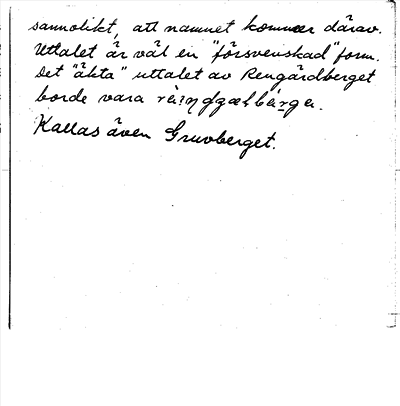 sannolikt, att namnet kommer därav.
Uttalet är väl en "försvenskad" form.
Det "äkta" uttalet av Rengårdberget
borde vara
Kallas även Gruvberget.